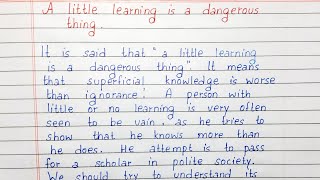 A little learning is a dangerous
thing.
It is said that "a little learning
is a dangerous thing". It means
that superficial knowledge is worse
than ignorance.' A person with
little or no learning is very often
seen to be vain, as he tries to
show that he knows more than
he does. He attempt is to pass
for a scholar in polite society.
We should try to understand its